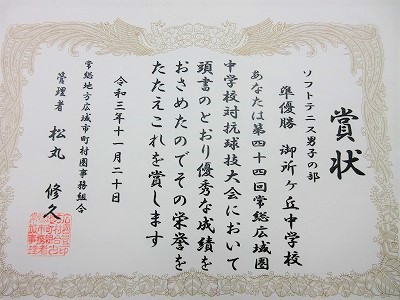 賞状
ソフトテニス男子の部
準優勝 御所ヶ丘中学校
あなたは第四十四回常総広域圏
中学校対抗球技大会において
頭書のとおり優秀な成績を
おさめたのでその栄誉を
たたえこれを賞します
令和三年十一月二十日
常総地方広域市町村圏事務組合
管理者 松丸 修久